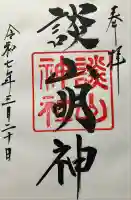 奉拝
談山明神
談山神社
令和七年三月二十日